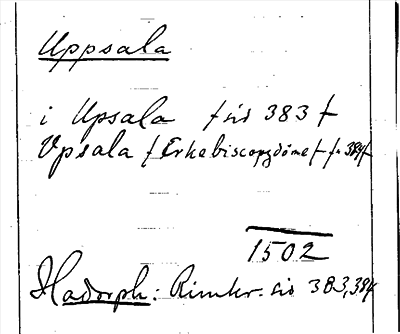 Uppsala
i Upsala f sid 383 f
Vpsala f Erkebiscopzdömet f s. 384 f
1502
Hadorph: Rimkr. sid 383, 384